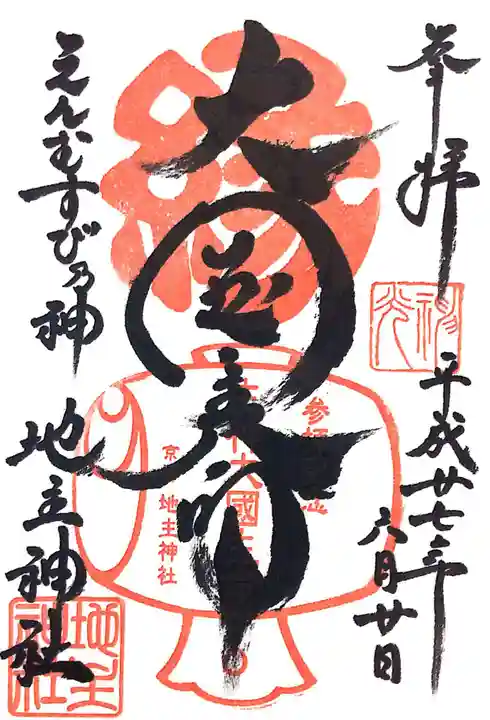 奉拝
平成廿七年
六月廿日
大國主命
えんむすびの神
地主神社
参拝
大國
京
地主神社
地主
神社